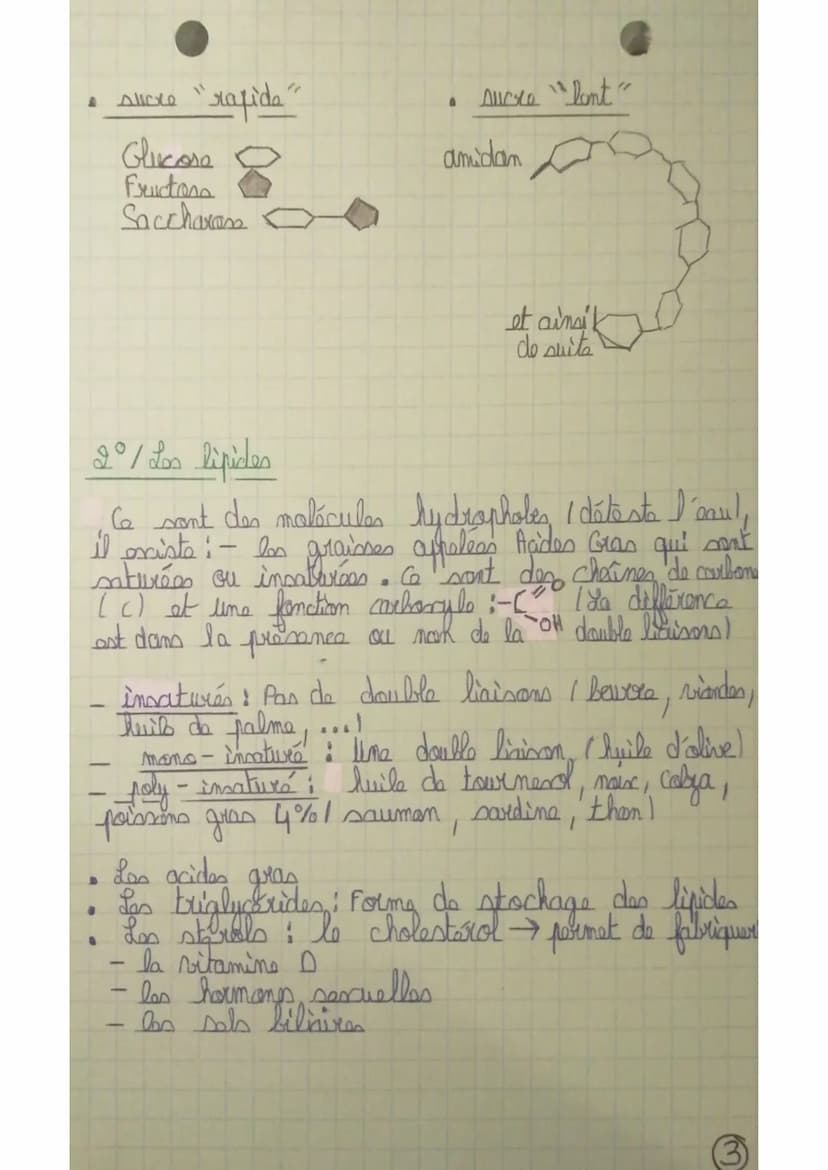 • sucre "rapide"
• sucre "lent"
Glucose
Fructose
Saccharose
amidon
et ainsi
de suite
2°/ Les lipides
Ce sont des molécules hydropholes (déteste l'eau),
il existe : - les graisses appelées Acides Gras qui sont
saturées ou insaturées. Ce sont des chaînes de carbone
(C) et une fonction carboxyle : -C=O OH (La différence
est dans la présence ou non de la double liaisons)
- insaturés : Pas de double liaisons (beurre, viandes,
huile de palme, ...)
- mono-insaturé : Une double liaison (huile d'olive)
- poly-insaturé : huile de tournesol, noix, colza,
poissons gras 4% (saumon, sardine, thon)
• Les acides gras
• Les triglycérides : Forme de stockage des lipides
• Les stérols : le cholestérol → permet de fabriquer
- la vitamine D
- les hormones sexuelles
- les sels biliaires
3